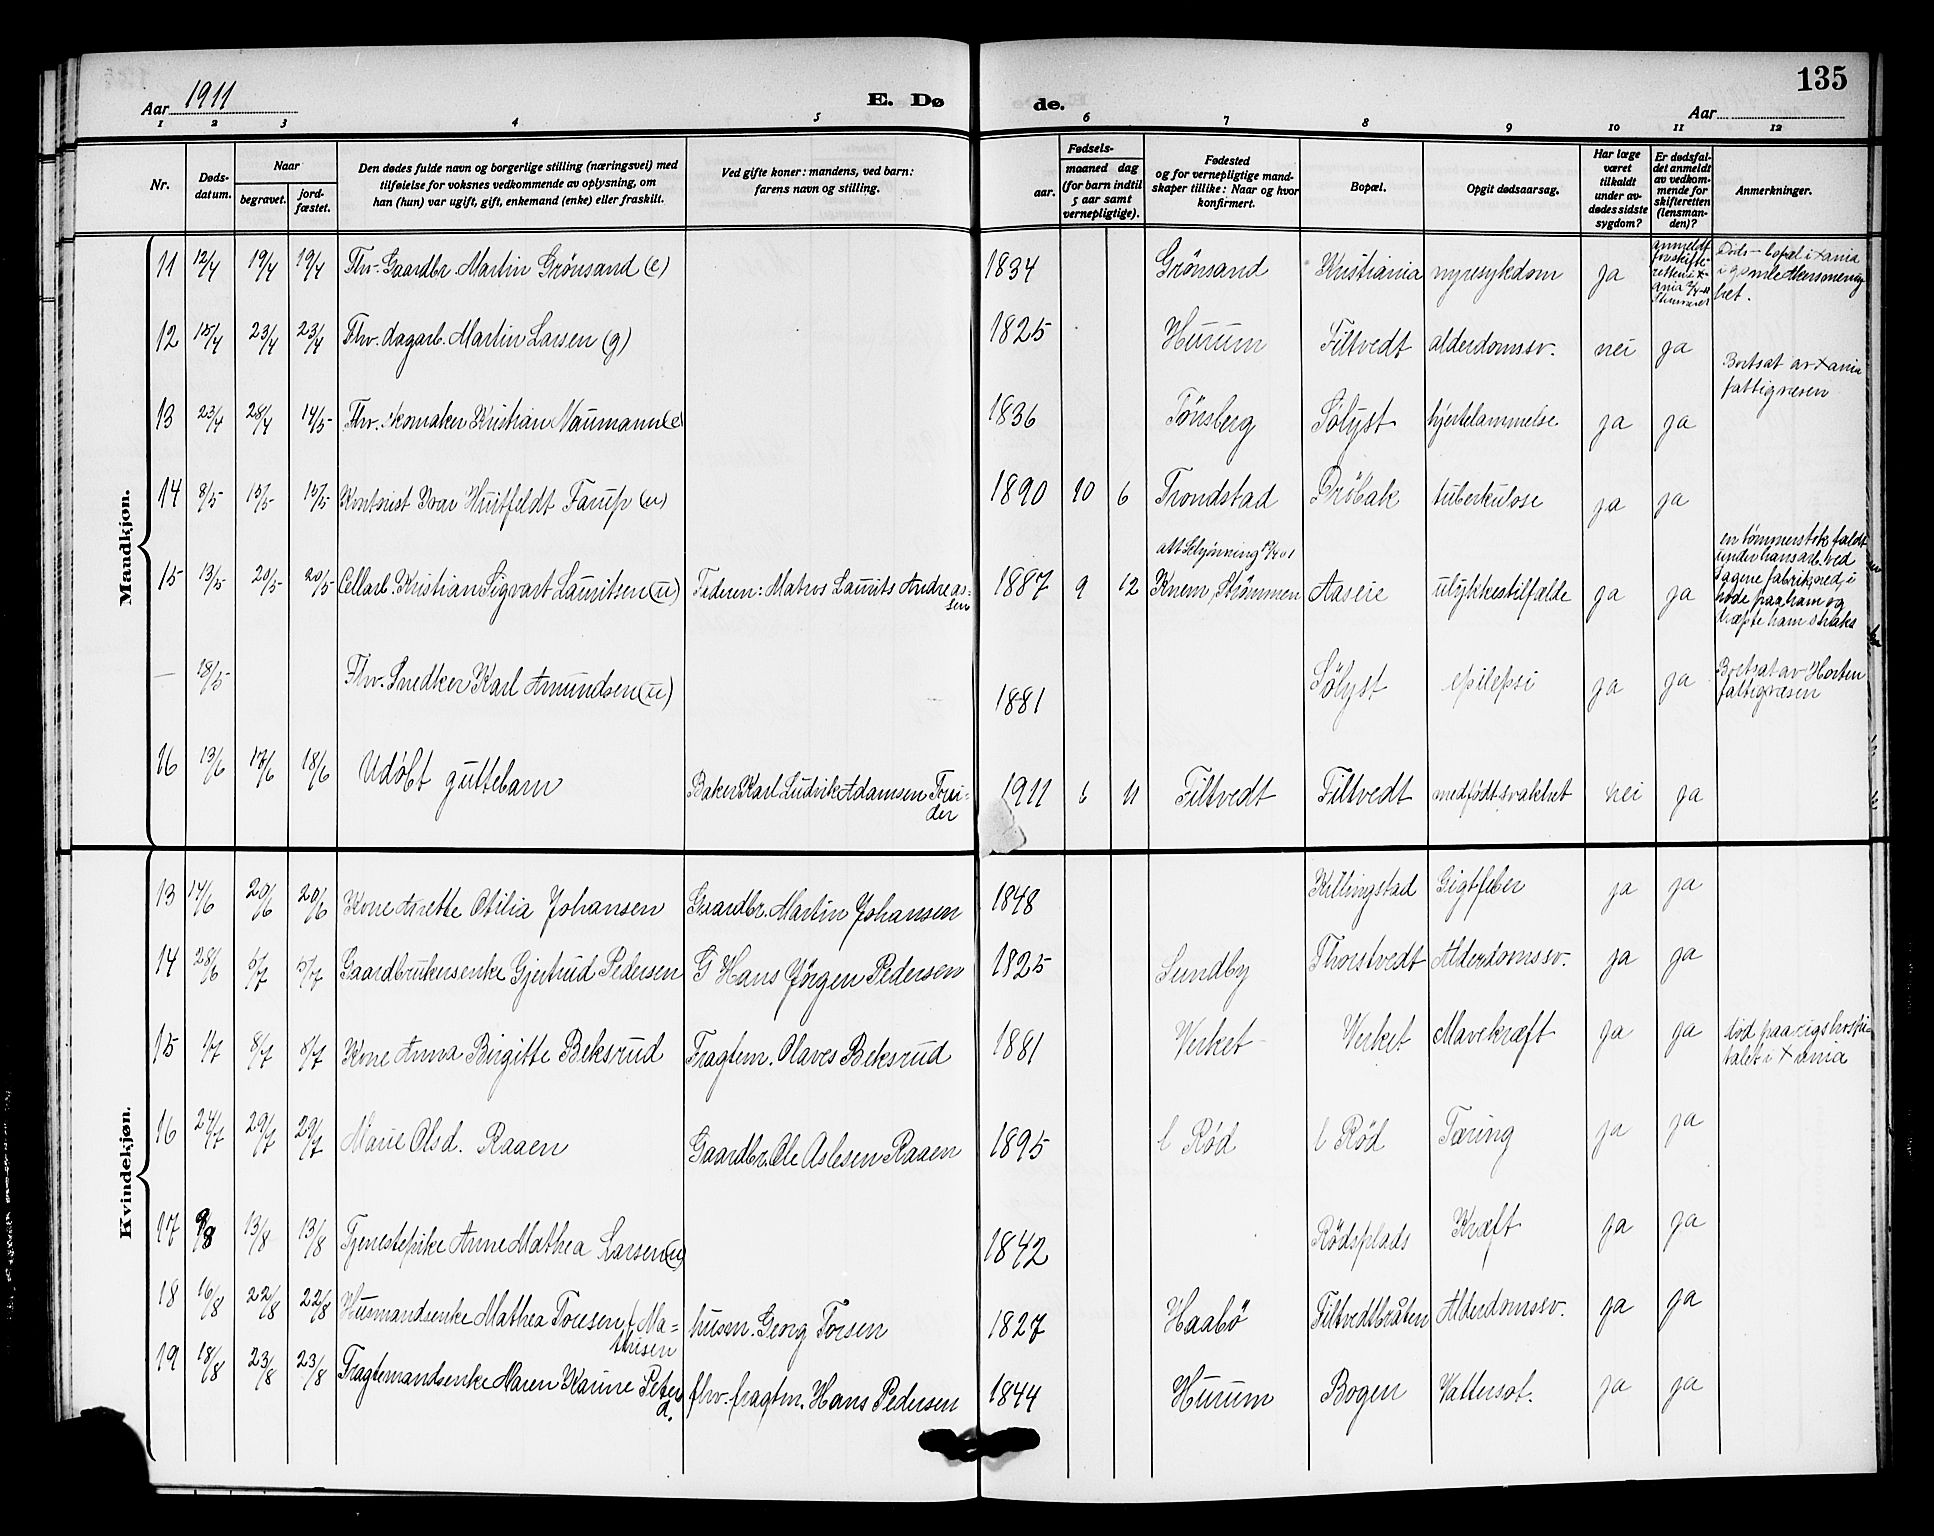 Aar 1911 E. Dø de. Aar 135
1 2 3 4 5 6 7 8 9 10 11 12
Nr. Døds-datum. Naar begravet. jord-fæstet. Den dødes fulde navn og borgerlige stilling (næringsvei) med tilføielse for voksnes vedkommende av oplysning, om han (hun) var ugift, gift, enkemand (enke) eller fraskilt. Ved gifte koner: mandens, ved barn: farens navn og stilling. Fødsels- aar. maaned dag (for barn indtil 5 aar samt vernepligtige). Fødested og for vernepligtige mand-skaper tillike: Naar og hvor konfirmert. Bopæl. Opgit dødsaarsag. Har læge været tilkaldt under av-dødes sidste sygdom? Er dødsfal-det anmeldt av vedkom-mende for skifteretten (lensman-den)? Anmerkninger.
Mandkjøn.
11 12/4 19/4 19/4 Fhv. Gaardbr Martin Grönsand (e) 1834 Grönsand Kristiania nyresykdom ja Døds- bopæl i Xania i gamle
12 15/4 23/4 23/4 Fhv. dagarb. Martin Larsen (g) 1825 Hurum Filtvedt alderdomssv. nei ja
13 23/4 28/4 14/5 Fhv. skomaker Kristian Naumann (e) 1836 Tönsberg Sölyst hjertelammelse ja ja Bortsat av Xania fattigvæsen
14 8/5 15/5 15/5 Kontorist Ivar Huitfeldt Farup (u) 1890 10 6 Trondstad Dröbak tuberkulose ja ja
15 13/5 20/5 20/5 Cellarb. Kristian Sigvart Lauritsen (u) Faderen: Matros Laurits Andreas-sen 1887 9 12 Knem, Strömmen Aaseie ulykkestilfælde ja ja en tömmerstok faldt under hans arb. ved Tagene fabrik ned i hode paa ham og dræpte ham straks
— 18/5 Fhv. Snedker Karl Amundsen (u) 1881 Sölyst epilepsi ja ja Bortsat av Horten fattigvæsen
16 13/6 17/6 18/6 Udøbt guttebarn Baker Karl Ludvik Adamsen 1911 6 11 Filtvedt Filtvedt medfödt svakhet nei ja
Kvindekjøn.
13 14/6 20/6 20/6 Kone Anette Otilia Johansen Gaardbr. Martin Johansen 1848 Killingstad Gigtfeber ja ja
14 28/6 5/7 5/7 Gaardbrukersenke Gjertrud Pedersen G Hans Jörgen Pedersen 1825 Sundby Thorstvedt Alderdomssv. ja ja
15 1/7 8/7 8/7 Kone Anna Birgitte Beksrud Fragtem. Olaves Beksrud 1881 Verket Verket Mavekræft ja ja död paa rigshospi-talet i Xania
16 24/7 29/7 29/7 Marie Olsd. Raaen Gaardbr. Ole Aslesen Raaen 1895 l Rød l Rød Tæring ja ja
17 9/8 13/8 13/8 Tjenestepike Anne Mathea Larsen (u) 1842 Rödsplads Kræft ja ja
18 16/8 22/8 22/8 Husmandsenke Mathea Toresen f Ma-thisen husm. Georg Torsen 1827 Haabö Filtvedtbråten Alderdomssv. ja ja
19 18/8 23/8 23/8 Fragtemandsenke Maren Karine Peters d. fhv. fragtm. Hans Pedersen 1844 Hurum Bogen Vattersot. ja ja